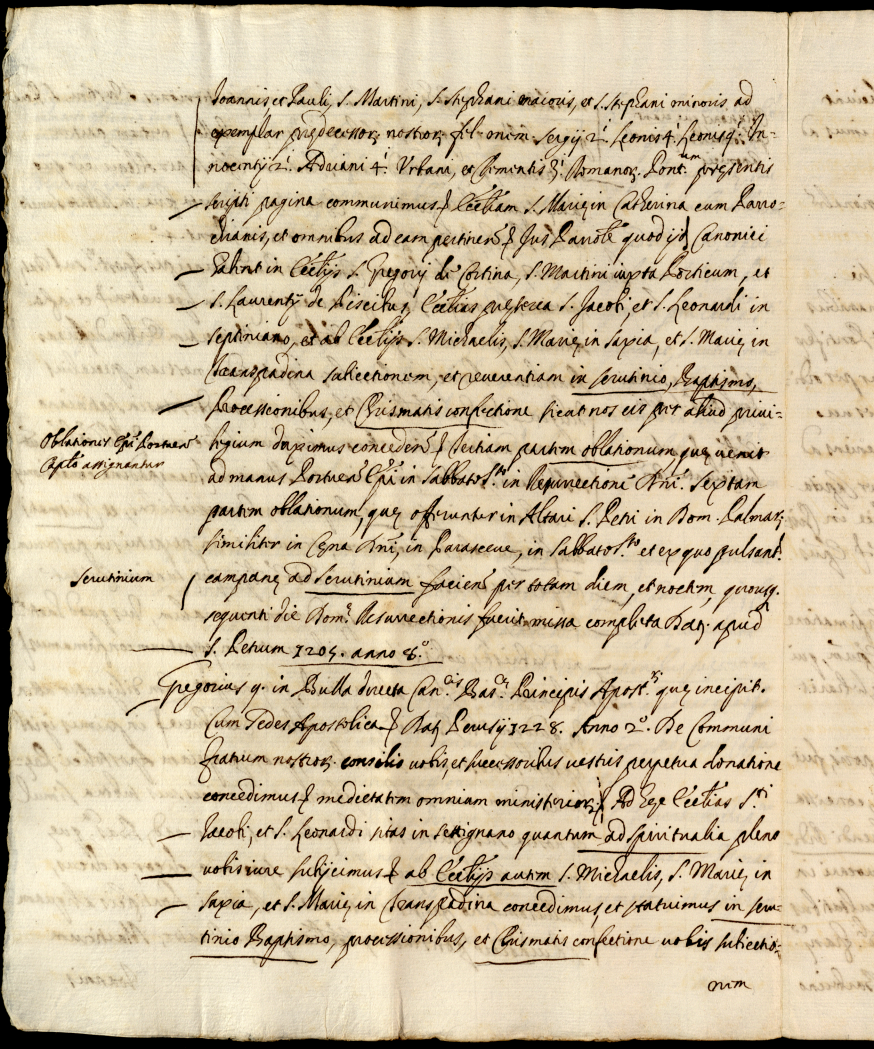 Joannis, et Pauli, S. Martini, S. Stephani maioris, et S. Stephani minoris ad
exemplar prędecessorȝ nostrorȝ fel. Sergij 2.i Leonis 4.i Leonis 9.i In-
nocentij 2.i Adriani 4.i Urbani, et Clementis 3.i Romanorȝ Pont.um pręsentis
scripti pagina communimus Eccliam S. Marię in Catherina cum Parro-
chianis, et omnibus ad eam pertinen. Jus Parrole quod ijd Canonici
habent in Ecclijs S. Gregorij de Cortina, S. Martini iuxta Porticum, et
S. Laurentij de Piscibus, Ecclias pręterea S. Jacobi, et S. Leonardi in
septiniano, et ab Ecclijs S. Michaelis, S. Marię in Saxia, et S. Marię in
Transpadina subiectionem, et reverentiam in scrutinio, Baptismo,
Processionibus, et Chrismatis confectione sicut nos eis per aliud privi-
Oblationes Epi Portuen
Caplo assignantur
legium duximus conceden. tertiam partem oblationum quę venit
ad manus Portuen Epi in Sabbato S.to in Resurrectione Dni. Sextam
partem oblationum, quę offeruntur in Altari S. Petri in Dom. Palmarȝ
similiter in Cęna Dni, in Parasceve, in Sabbato S.to et ex quo pulsant.r
Scrutinium
campanę ad scrutinium facien per totam diem, et noctem, quousq.
sequenti die Dom.ę Resurrectionis fuerit missa completa Dat. apud
S. Petrum 1205. anno 8.o
Gregorius 9. in Bulla directa Can.cis Bas.cę Principis Apost. quę incipit.
Cum sedes Apostolica Dat. Perusij 1228. Anno 2.o De Communi
fratrum nostrorȝ consilio vobis, et successoribus vestris perpetua donatione
concedimus medietatem omnium ministeriorȝ Ad Ecclias S.ti
Jacobi, et S. Leonardi sitas in settignano quantum ad spiritualia pleno
vobis iure subijcimus ab Ecclijs autem S. Michaelis, S. Marię in
Saxia, et S. Marię in Transpadina concedimus, et statuimus in scru-
tinio Baptismo, processionibus, et Chrismatis confectione vobis subiectio-
nem